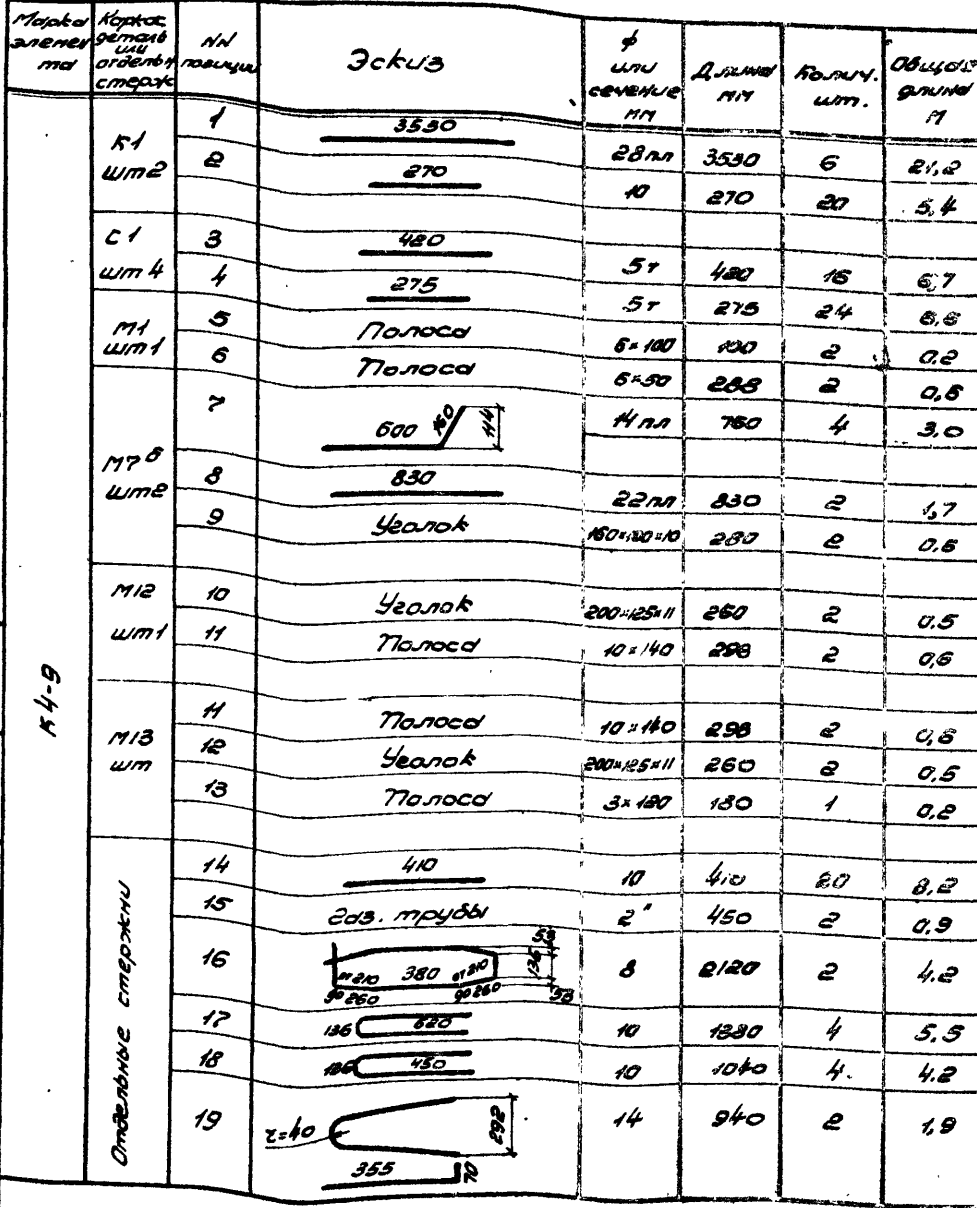 Марка элемента | Каркас деталь или отдельн стерж | NN позиции | Эскиз | ф или сечение мм | Длина мм | Колич. шт. | Общая длина м
К4-9
К1 шт2 | 1 | 3530 | 28пл | 3530 | 6 | 21,2
2 | 270 | 10 | 270 | 20 | 5,4
С1 шт 4 | 3 | 420 | 5т | 420 | 16 | 6,7
4 | 275 | 5т | 275 | 24 | 6,6
М1 шт1 | 5 | Полоса | 6×100 | 100 | 2 | 0.2
6 | Полоса | 6×50 | 288 | 2 | 0,6
М7б шт2 | 7 | 600 160 114 | 14 пл | 760 | 4 | 3,0
8 | 830 | 22пл | 830 | 2 | 1,7
9 | Уголок | 160×100×10 | 280 | 2 | 0.6
М12 шт1 | 10 | Уголок | 200×125×11 | 260 | 2 | 0.5
11 | Полоса | 10×140 | 298 | 2 | 0,6
М13 шт | 11 | Полоса | 10×140 | 298 | 2 | 0,6
12 | Уголок | 200×125×11 | 260 | 2 | 0.5
13 | Полоса | 3×180 | 180 | 1 | 0.2
Отдельные стержни | 14 | 410 | 10 | 410 | 20 | 8,2
15 | Газ. трубы | 2" | 450 | 2 | 0.9
16 | от 210 до 260 380 от 210 до 260 53 136 53 | 8 | 2120 | 2 | 4.2
17 | 136 620 | 10 | 1380 | 4 | 5.5
18 | 136 450 | 10 | 1040 | 4. | 4.2
19 | r=40 292 355 70 | 14 | 940 | 2 | 1,9